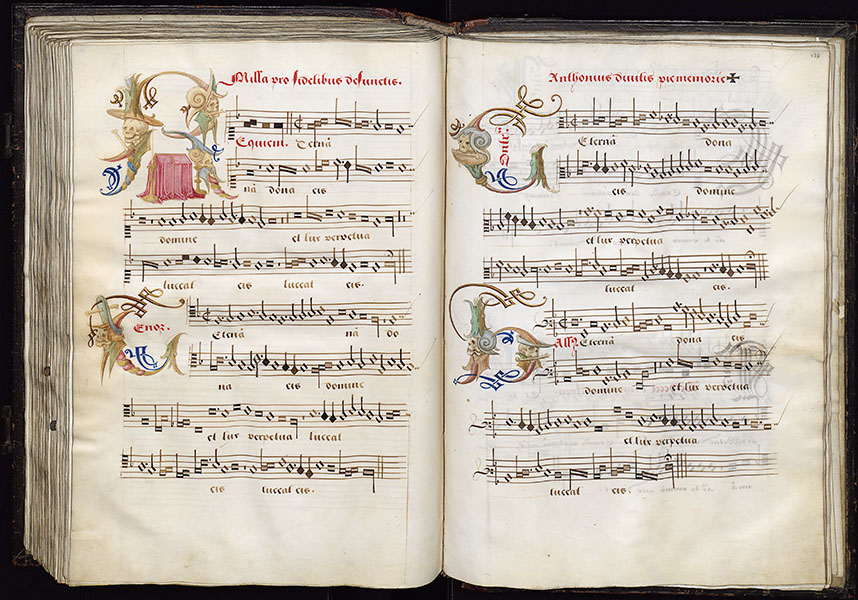 Missa pro fidelibus defunctis.
Requiem. Eternā
nā dona eis
domine et lux perpetua
luceat eis luceat eis.
Tenor. Eternā nā do
na eis domine
et lux perpetua luceat
eis luceat eis.
Anthonius divitis pie memorie
Eternā dona
eis domine
et lux perpetua
luceat eis.
Eternā dona eis
domine et lux perpetua
et lux perpetua
luceat eis.